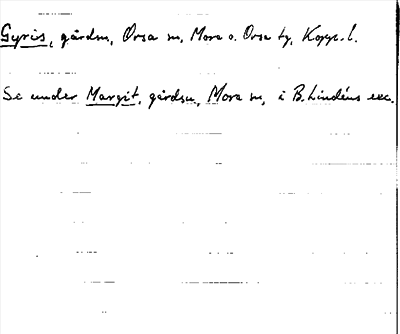 Gyris, gårdsn, Orsa sn, Mora o. Orsa tg, Kopp. l.
Se under Margit, gårdsn, Mora sn, i B. Lindéns exc.